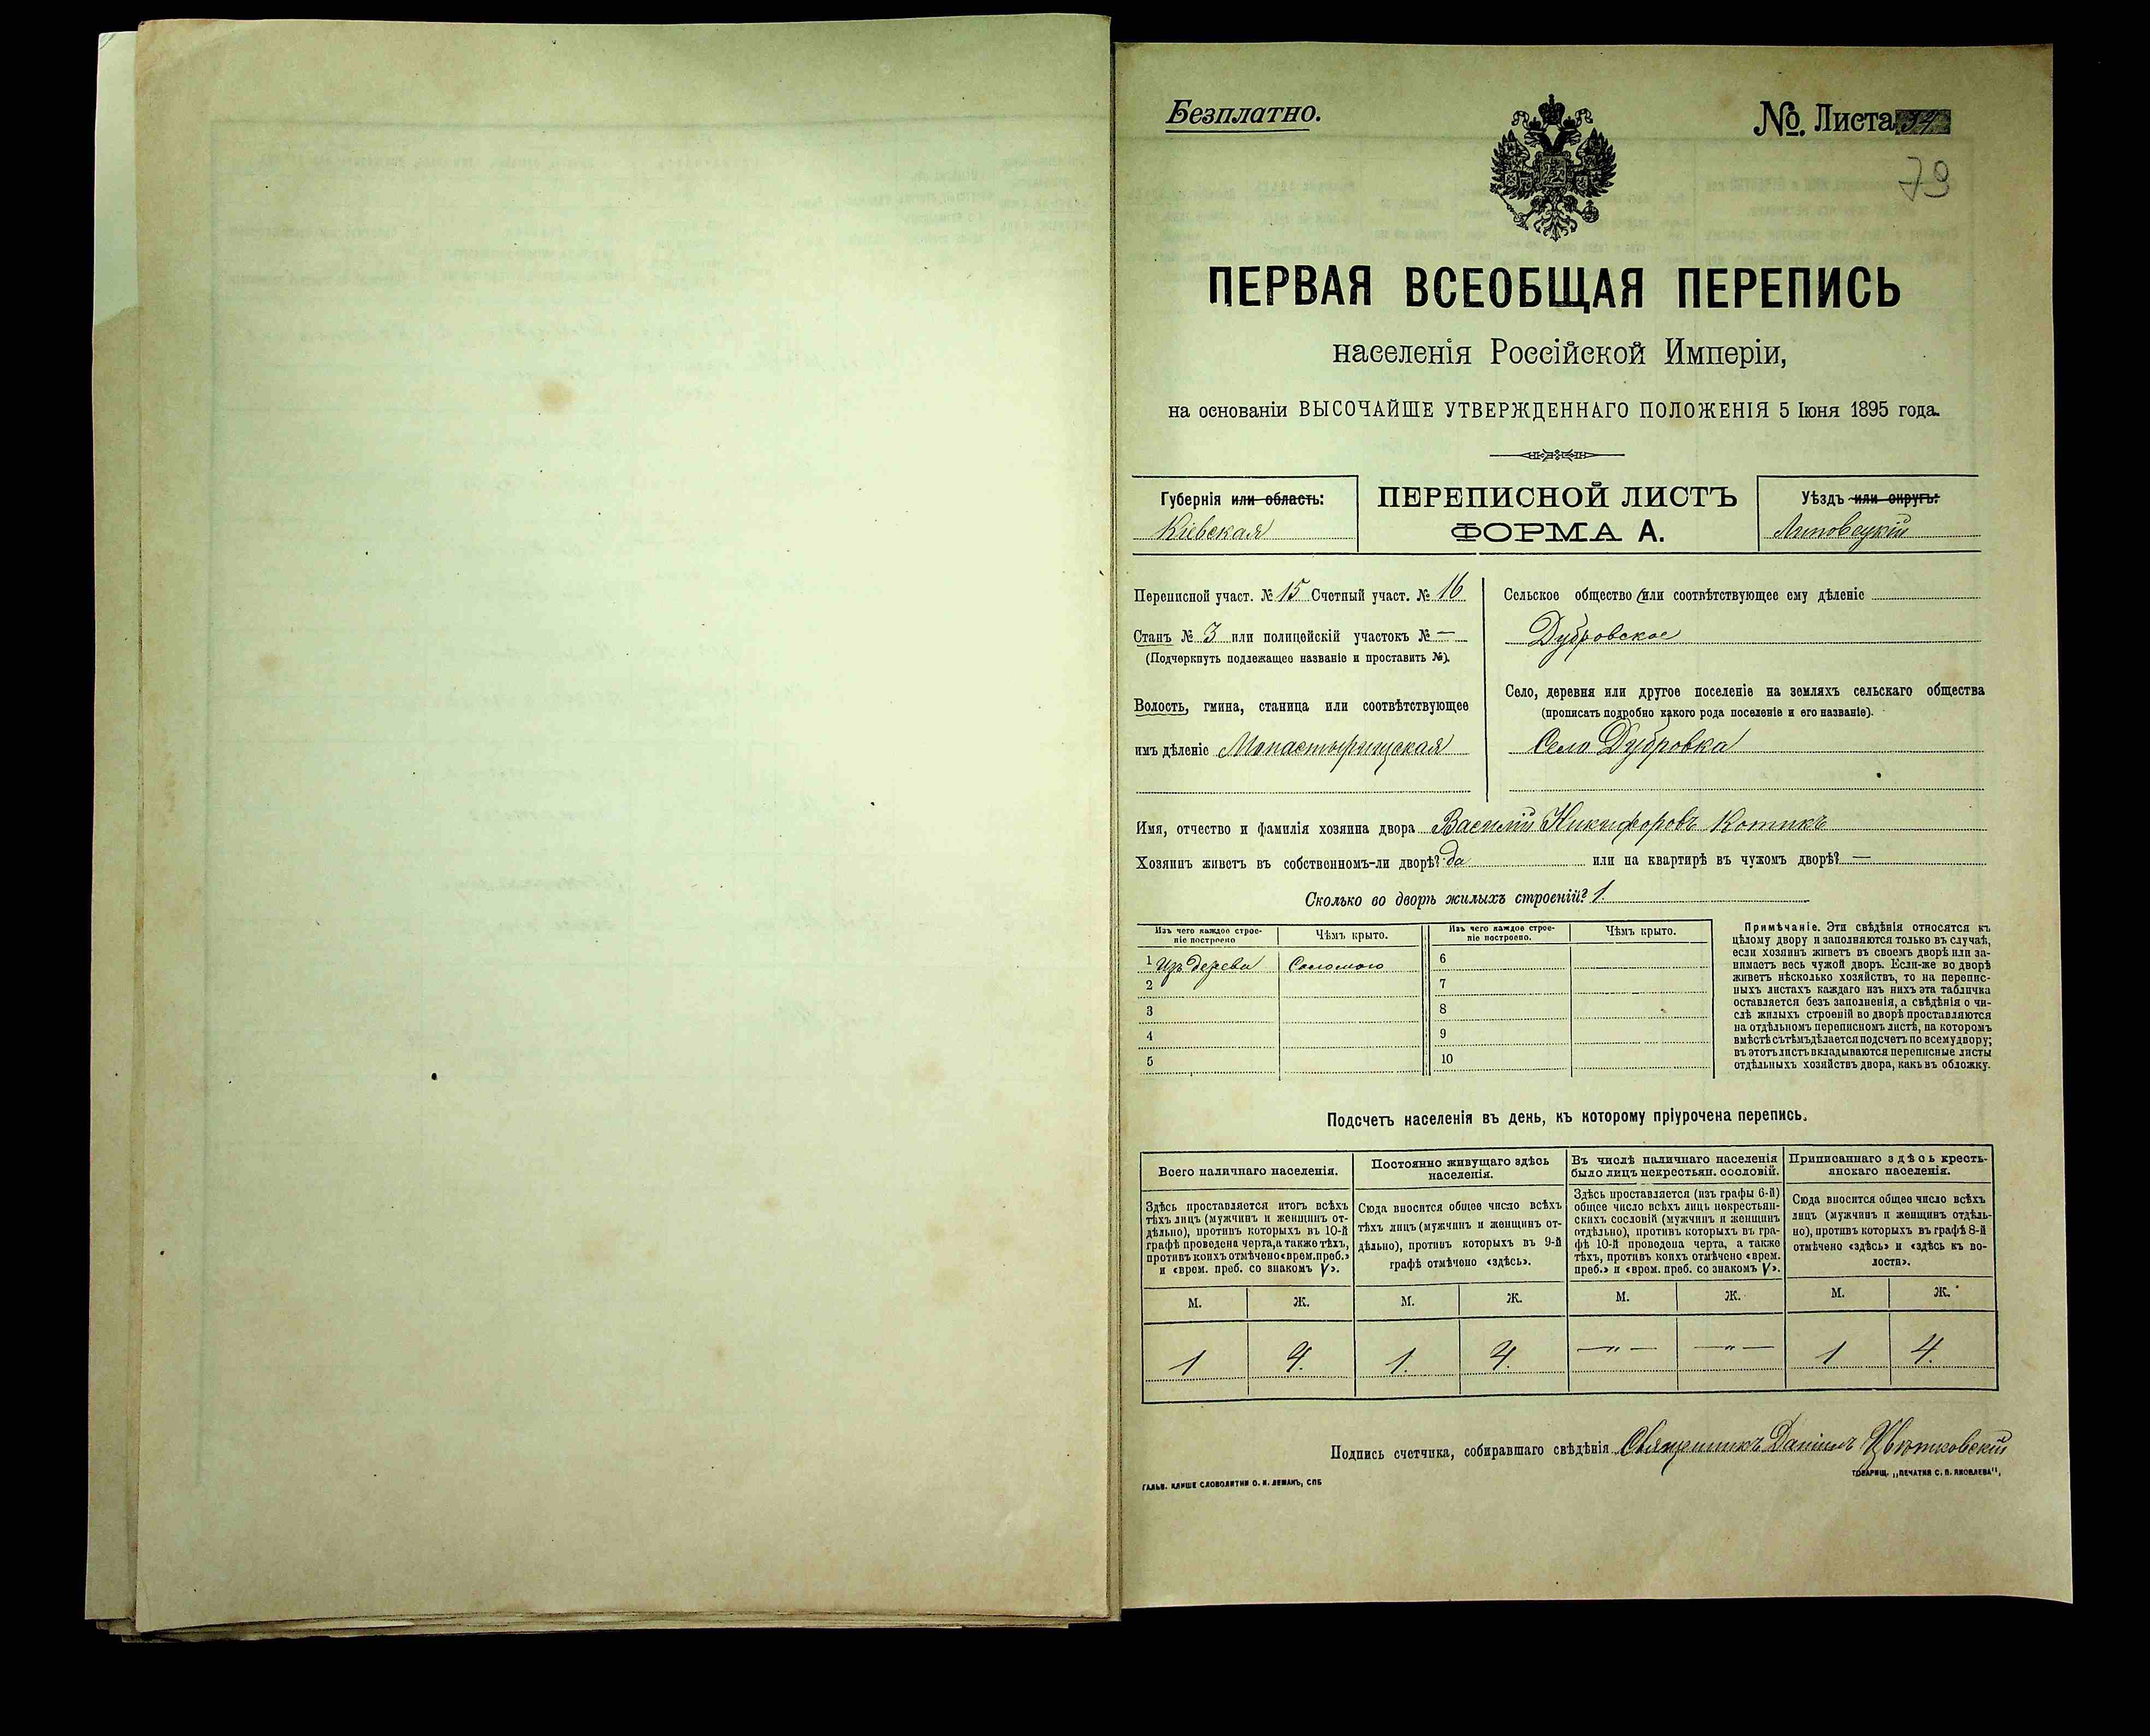 Безплатно.
№. Листа
79
ПЕРВАЯ ВСЕОБЩАЯ ПЕРЕПИСЬ
населенія Россійской Имперіи,
на основаніи ВЫСОЧАЙШЕ УТВЕРЖДЕННАГО ПОЛОЖЕНІЯ 5 Іюня 1895 года.
Губернія или область:
Кіевская
ПЕРЕПИСНОЙ ЛИСТЪ
ФОРМА А.
Уѣздъ или округъ:
Липовецкій
Переписной участ. № 15 Счетный участ. № 16
Станъ № 3 или полицейскій участокъ № —
(Подчеркнуть подлежащее названіе и проставить №).
Волость, гмина, станица или соотвѣтствующее
имъ дѣленіе Монастырищская
Сельское общество (или соотвѣтствующее ему дѣленіе
Дубровское
Село, деревня или другое поселеніе на земляхъ сельскаго общества
(прописать подробно какого рода поселеніе и его названіе).
Село Дубровка
Имя, отчество и фамилія хозяина двора Василій Никифоровъ Котикъ
Хозяинъ живетъ въ собственномъ-ли дворѣ? да или на квартирѣ въ чужомъ дворѣ? —
Сколько во дворѣ жилыхъ строеній? 1.
Изъ чего каждое строе-
ніе построено
Чѣмъ крыто.
Изъ чего каждое строе-
ніе построено.
Чѣмъ крыто.
1 Изъ дерева Соломою 6
2 7
3 8
4 9
5 10
Примѣчаніе. Эти свѣдѣнія относятся къ
цѣлому двору и заполняются только въ случаѣ,
если хозяинъ живетъ въ своемъ дворѣ или за-
нимаетъ весь чужой дворъ. Если-же во дворѣ
живетъ нѣсколько хозяйствъ, то на перепис-
ныхъ листахъ каждаго изъ нихъ эта табличка
оставляется безъ заполненія, а свѣдѣнія о чи-
слѣ жилыхъ строеній во дворѣ проставляются
на отдѣльномъ переписномъ листѣ, на которомъ
вмѣстѣ съ тѣмъ дѣлается подсчетъ по всему двору;
въ этотъ листъ вкладываются переписные листы
отдѣльныхъ хозяйствъ двора, какъ въ обложку.
Подсчетъ населенія въ день, къ которому пріурочена перепись.
Всего наличнаго населенія.
Постоянно живущаго здѣсь
населенія.
Въ числѣ наличнаго населенія
было лицъ некрестьян. сословій.
Приписаннаго здѣсь кресть-
янскаго населенія.
Здѣсь проставляется итогъ всѣхъ
тѣхъ лицъ (мужчинъ и женщинъ от-
дѣльно), противъ которыхъ въ 10-й
графѣ проведена черта, а также тѣхъ,
противъ коихъ отмѣчено «врем. преб.»
и «врем. преб. со знакомъ V».
Сюда вносится общее число всѣхъ
тѣхъ лицъ (мужчинъ и женщинъ от-
дѣльно), противъ которыхъ въ 9-й
графѣ отмѣчено «здѣсь».
Здѣсь проставляется (изъ графы 6-й)
общее число всѣхъ лицъ некрестьян-
скихъ сословій (мужчинъ и женщинъ
отдѣльно), противъ которыхъ въ гра-
фѣ 10-й проведена черта, а также
тѣхъ, противъ коихъ отмѣчено «врем.
преб.» и «врем. преб. со знакомъ V».
Сюда вносится общее число всѣхъ
лицъ (мужчинъ и женщинъ отдѣль-
но), противъ которыхъ въ графѣ 8-й
отмѣчено «здѣсь» и «здѣсь къ во-
лости».
М. Ж. М. Ж. М. Ж. М. Ж.
1 4. 1. 4. — " — — " — 1 4.
Подпись счетчика, собиравшаго свѣдѣнія Священникъ Даніилъ Цвѣтковскій
ГАЛЬВ. КЛИШЕ СЛОВОЛИТНИ О. И. ЛЕМАНЪ, СПБ
ТОВАРИЩ. „ПЕЧАТНЯ С. П. ЯКОВЛЕВА",